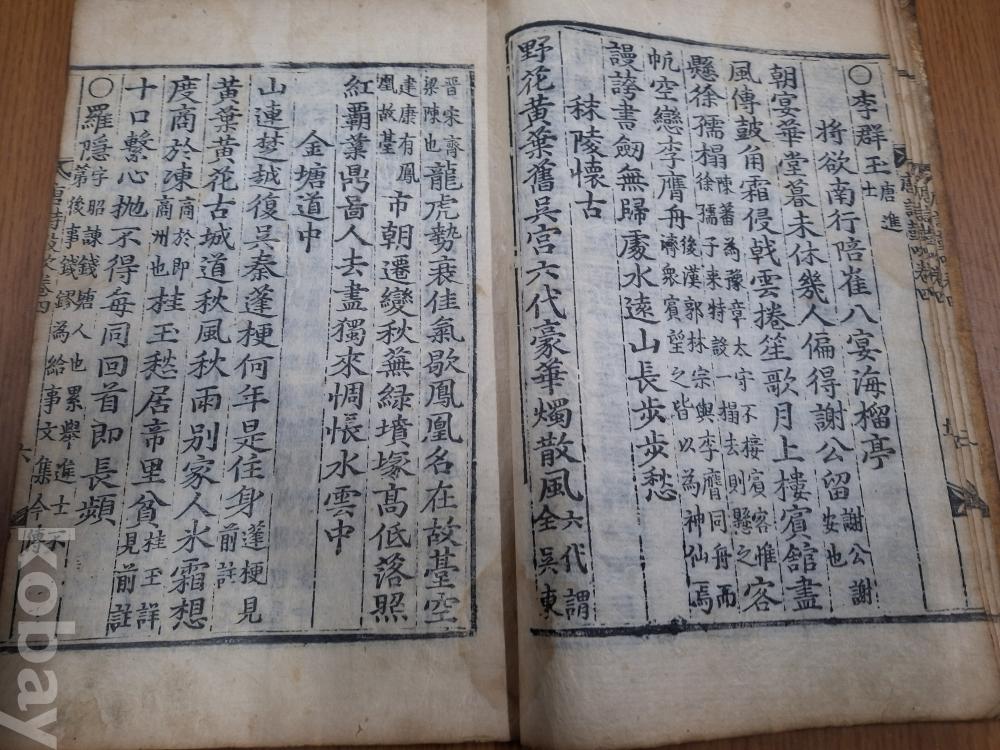 ○李群玉唐進士
將欲南行陪崔八宴海榴亭
朝宴華堂暮未休幾人偏得謝公留謝公謝安也
風傳鼓角霜侵戟雲捲笙歌月上樓賓舘盡
懸徐孺榻陳蕃為豫章太守不接賓客惟徐孺子来特設一榻去則懸之客
帆空戀李膺舟後漢郭林宗與李膺同舟而濟衆賓望之皆以為神仙焉
謾誇書劒無歸處水遠山長步步愁
秣陵懷古
野花黃葉舊吳宮六代豪華燭散風六代謂全吳東
晋宋齊梁陳也龍虎勢衰佳氣歇鳳凰名在故臺空
建康有鳳凰故臺市朝遷變秋蕪綠墳塚高低落照
紅霸業鼎啚人去盡獨來惆悵水雲中
金塘道中
山連楚越復吳秦蓬梗何年是住身蓬梗見前註
黃葉黃花古城道秋風秋雨別家人氷霜想
度商於凍商於即商州也桂玉愁居帝里貧桂玉詳見前註
十口繫心抛不得每同回首即長頻
○羅隱字昭諫錢塘人也累舉進士不第後事錢鏐為給事文集今傳
唐詩鼓吹卷四 六
kobay